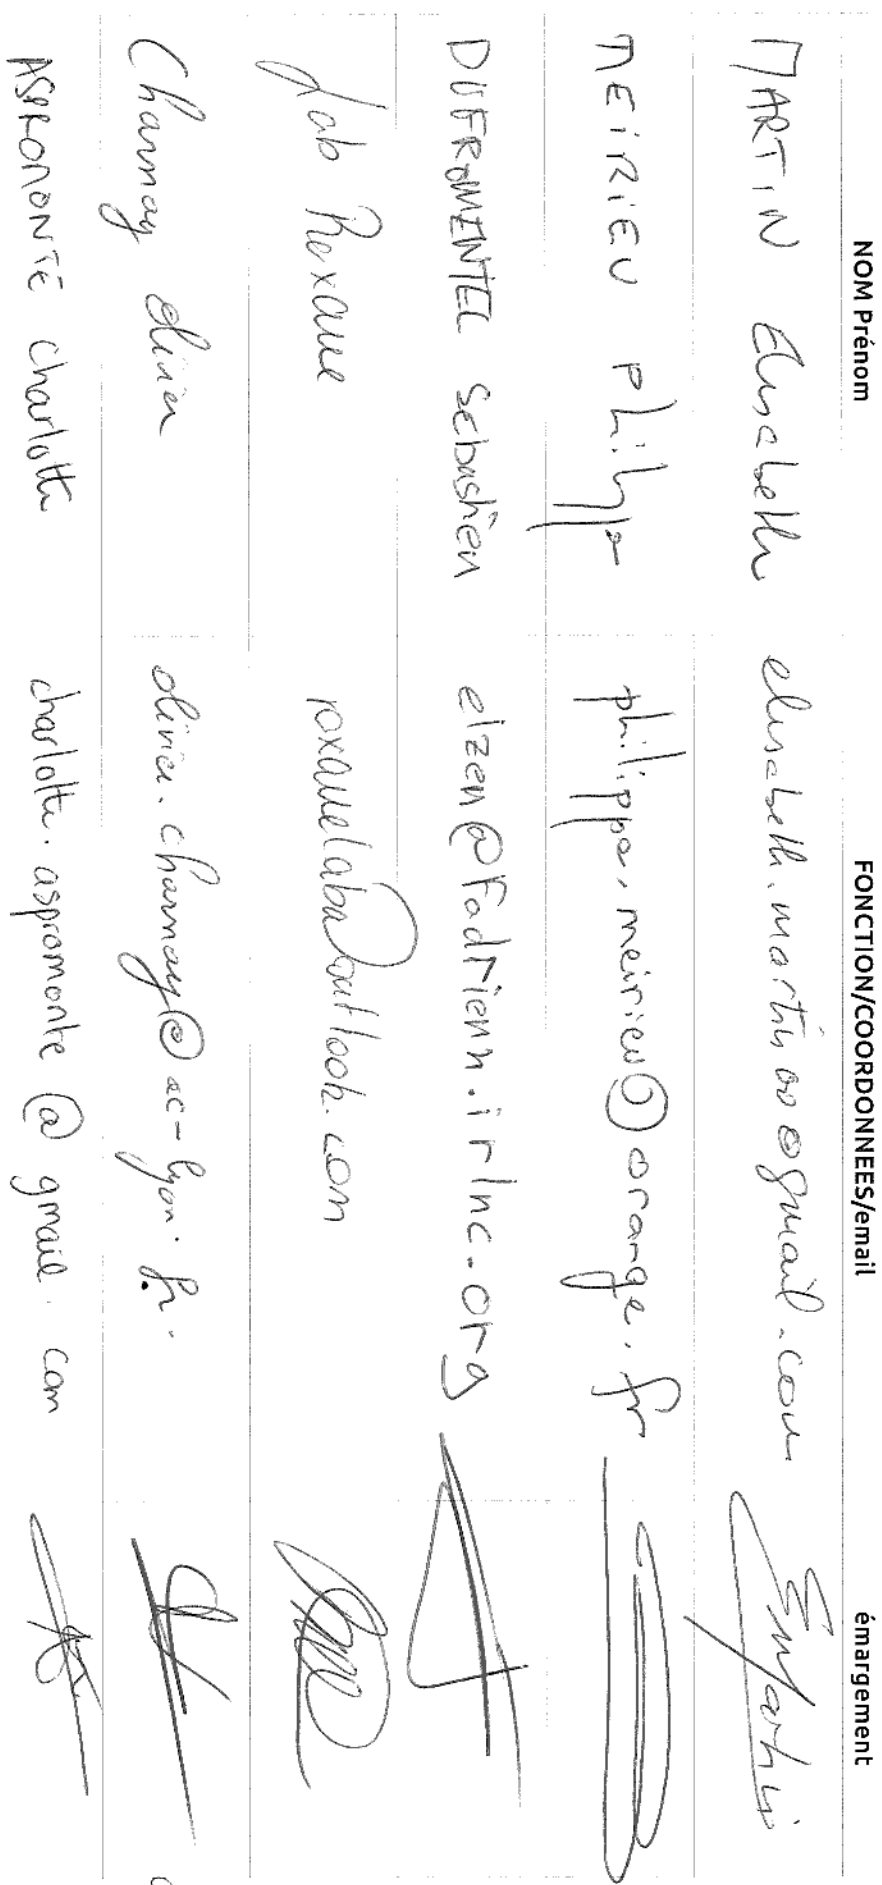 NOM Prénom FONCTION/COORDONNEES/email émargement
MARTIN Elisabeth elisabeth.martin00@gmail.com
MEIRIEU Philippe philippe.meirieu@orange.fr
DUFROMENTEL Sébastien elzen@Fadrienn.irlnc.org
Lab Roxane roxanelab@outlook.com
Charmay olivier olivier.charmay@ac-lyon.fr.
ASPROMONTE Charlotte charlotte.aspromonte@gmail.com